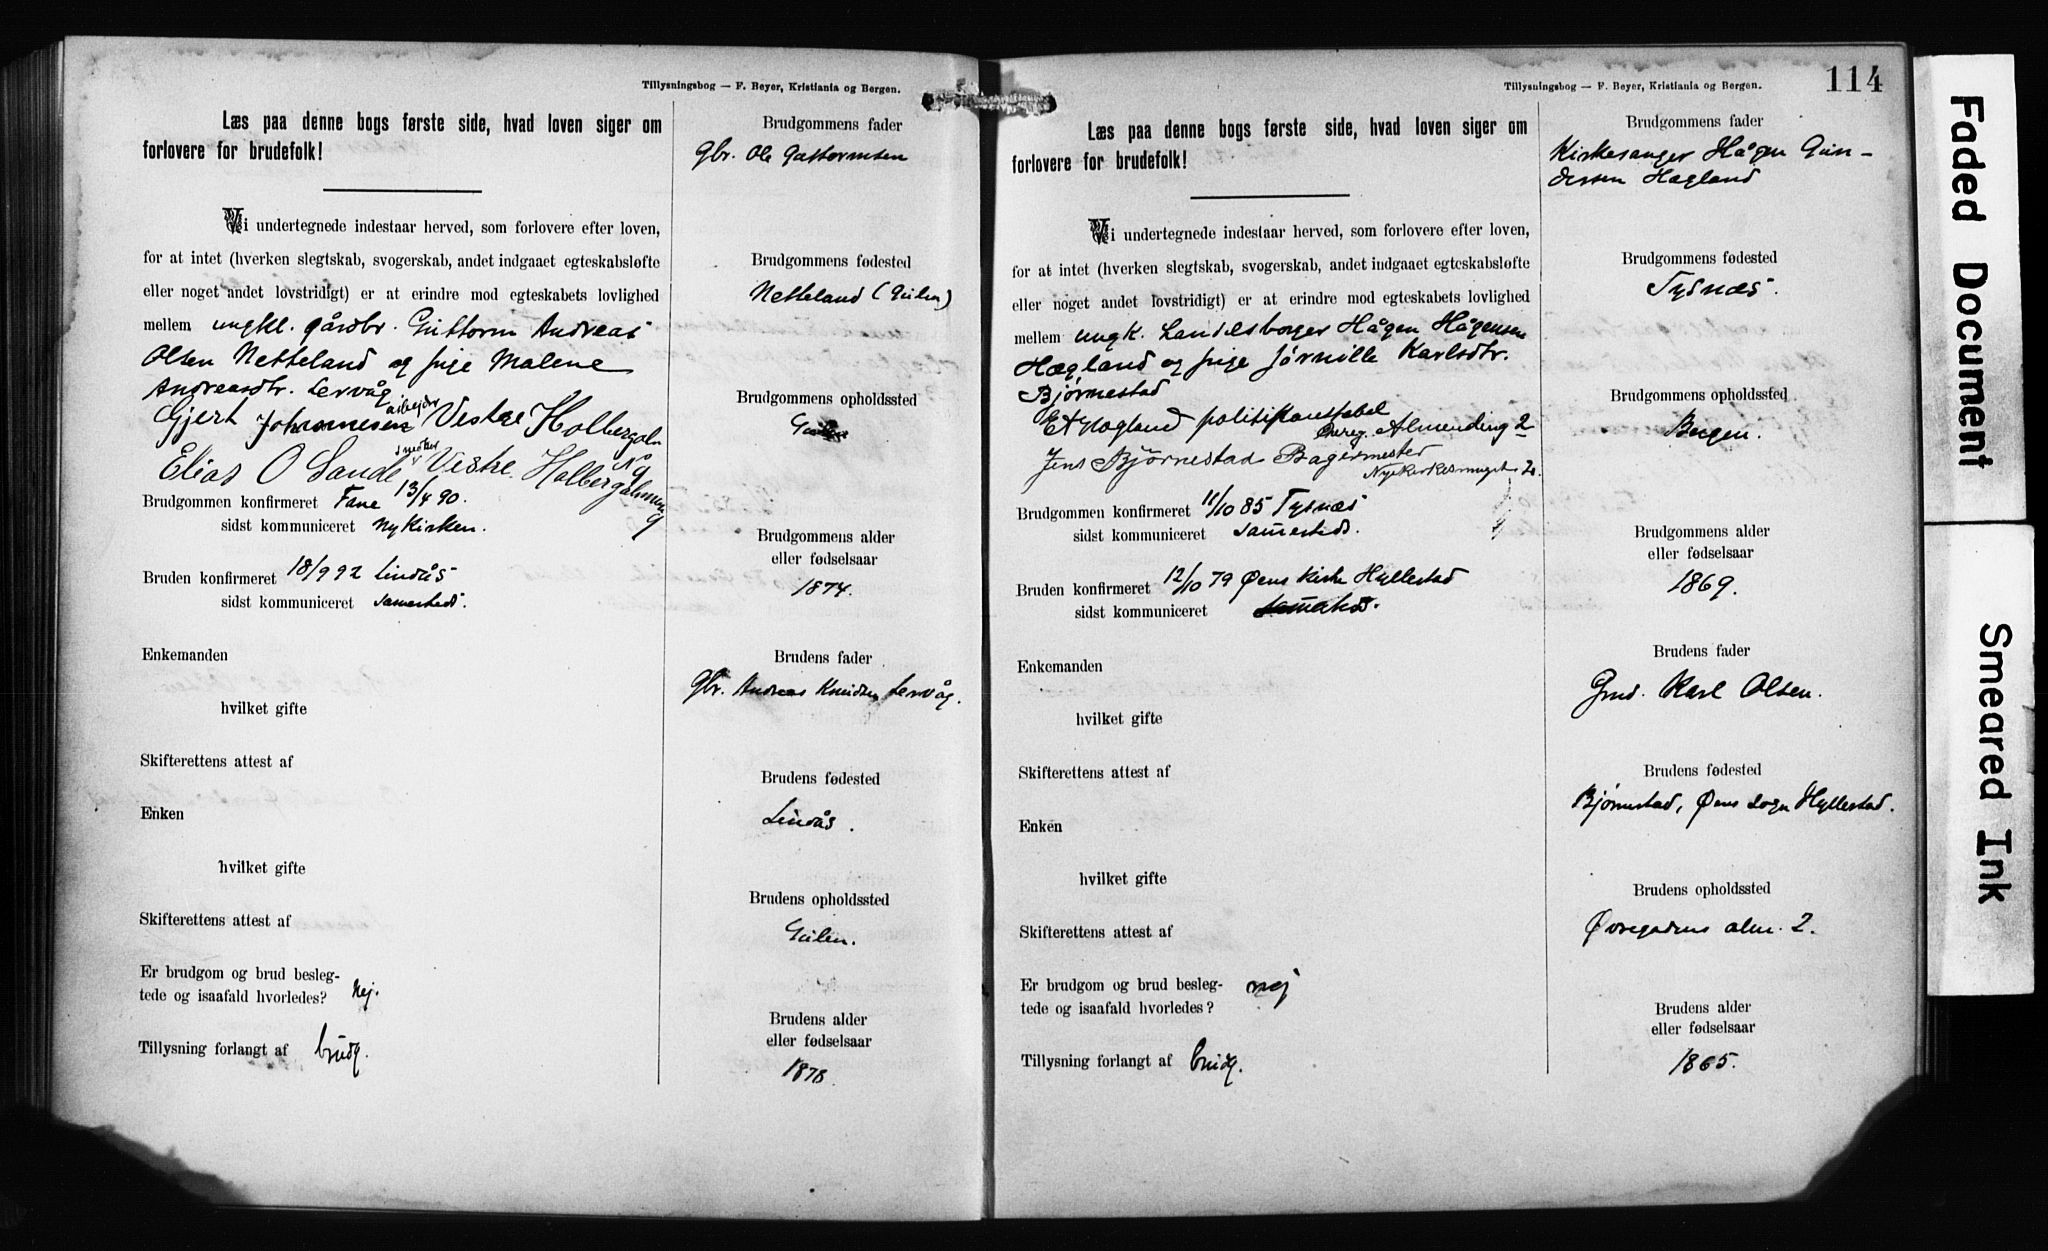 Tillysningbog — F. Beyer, Kristiania og Bergen.
Læs paa denne bogs første side, hvad loven siger om
forlovere for brudefolk!
Vi undertegnede indestaar herved, som forlovere efter loven,
for at intet (hverken slegtskab, svogerskab, andet indgaaet egteskabsløfte
eller noget andet lovstridigt) er at erindre mod egteskabets lovlighed
mellem ungkl. gårdbr. Guttorm Andreas
Olsen Netteland og pige Malene
Andreasdtr. Lervåg
Gjert Johannesen arbejder Vestre Holbergalm
No 9
Elias O Sande smeker Vestre Holbergalmning
9
Brudgommen konfirmeret Fane 13/4 90.
sidst kommuniceret Nykirken.
Bruden konfirmeret 18/9 92 Lindås
sidst kommuniceret samesteds.
Enkemanden
hvilket gifte
Skifterettens attest af
Enken
hvilket gifte
Skifterettens attest af
Er brudgom og brud besleg-
tede og isaafald hvorledes? Nej.
Tillysning forlangt af brudg.
Brudgommens fader
Gbr. Ole Guttormsen
Brudgommens fødested
Netteland (Gulen)
Brudgommens opholdssted
Gulen
Brudgommens alder
eller fødselsaar
1874.
Brudens fader
Gbr. Andreas Knudsen Lervåg.
Brudens fødested
Lindås.
Brudens opholdssted
Gulen.
Brudens alder
eller fødselsaar
1878.
Tillysningbog — F. Beyer, Kristiania og Bergen.
114
Læs paa denne bogs første side, hvad loven siger om
forlovere for brudefolk!
Vi undertegnede indestaar herved, som forlovere efter loven,
for at intet (hverken slegtskab, svogerskab, andet indgaaet egteskabsløfte
eller noget andet lovstridigt) er at erindre mod egteskabets lovlighed
mellem ungk. Landsborger Hågen Hågensen
Hægland og pige Jørnille Karlsdtr.
Bjørnestad
Hogland politikonstabel
Øvreg. Almending 2
Jens Bjørnestad Bagermester
Nykirkesmuget 2.
Brudgommen konfirmeret 11/10 85 Tysnæs
sidst kommuniceret samesteds.
Bruden konfirmeret 12/10 79 Øens kirke Hyllestad
sidst kommuniceret samesteds.
Enkemanden
hvilket gifte
Skifterettens attest af
Enken
hvilket gifte
Skifterettens attest af
Er brudgom og brud besleg-
tede og isaafald hvorledes? nej
Tillysning forlangt af brudg.
Brudgommens fader
Kirkesanger Hågen Gun-
dersen Hægland
Brudgommens fødested
Tysnæs.
Brudgommens opholdssted
Bergen.
Brudgommens alder
eller fødselsaar
1869.
Brudens fader
Grd. Karl Olsen.
Brudens fødested
Bjørnestad, Øens sogn Hyllestad.
Brudens opholdssted
Øvregadens alm. 2.
Brudens alder
eller fødselsaar
1865.
Faded Document
Smeared Ink